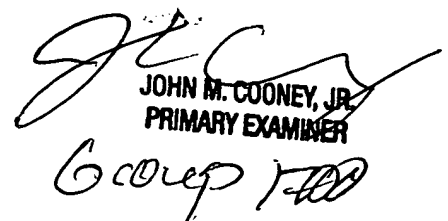 JOHN M. COONEY, JR.
PRIMARY EXAMINER
Group